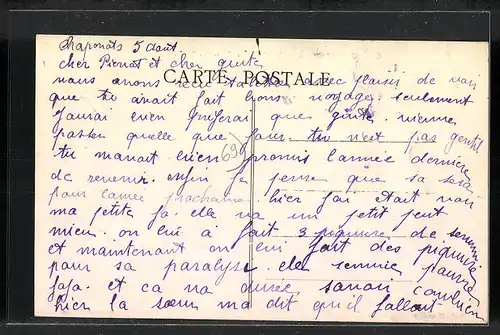 Chaponots 5 daout
cher Pierrot et cher guite
CARTE POSTALE
nous avons recu ta lettre avec plaisir de voir
que tu avait fait bons voyage. seulement
Jaurai bien preferai que guite vienne
passer quelle que jour. tu n'est pas gentil
tu manait bien promis l'année derniere
de revenir. enfin je pense que sa sera
pour l'anee prochaine. hier jai etait voir
ma petite fa. elle va un petit peut
mieu. on lui à fait 3 piqure de serum
et maintenant on lui fait des piqure
pour sa paralyse. elle semnie pauvre
fafa. et ca na durée savoir combien
hier la sœur ma dit qu'il fallait
69